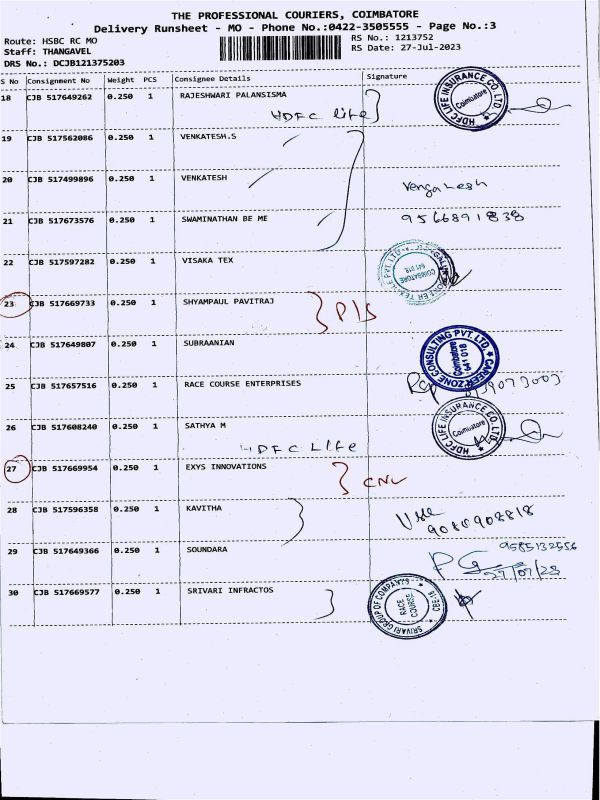 THE PROFESSIONAL COURIERS, COIMBATORE
Delivery Runsheet - MO - Phone No.:0422-3505555 - Page No.:3
Route: HSBC RC MO
Staff: THANGAVEL
DRS No.: DCJB121375203
RS No.: 1213752
RS Date: 27-Jul-2023
S No Consignment No Weight PCS Consignee Details Signature
18 CJB 517649262 0.250 1 RAJESHWARI PALANSISMA
HDFC life
HDFC LIFE INSURANCE CO. LTD. Coimbatore
19 CJB 517562086 0.250 1 VENKATESH.S
20 CJB 517499896 0.250 1 VENKATESH
Vengatesh
21 CJB 517673576 0.250 1 SWAMINATHAN BE ME 9566891838
22 CJB 517597282 0.250 1 VISAKA TEX
COIMBATORE 641 018
23 CJB 517669733 0.250 1 SHYAMPAUL PAVITRAJ
24 CJB 517649807 0.250 1 SUBRAANIAN
CAREER ZONE CONSULTING PVT. LTD. Coimbatore 641 018
25 CJB 517657516 0.250 1 RACE COURSE ENTERPRISES
26 CJB 517608240 0.250 1 SATHYA M
HDFC Life
HDFC LIFE INSURANCE CO. LTD. Coimbatore
27 CJB 517669954 0.250 1 EXYS INNOVATIONS
28 CJB 517596358 0.250 1 KAVITHA
9080908818
29 CJB 517649366 0.250 1 SOUNDARA 9585132556
27/07/23
30 CJB 517669577 0.250 1 SRIVARI INFRACTOS
SRIVARI GROUP OF COMPANYS CBE-18 RACE COURSE